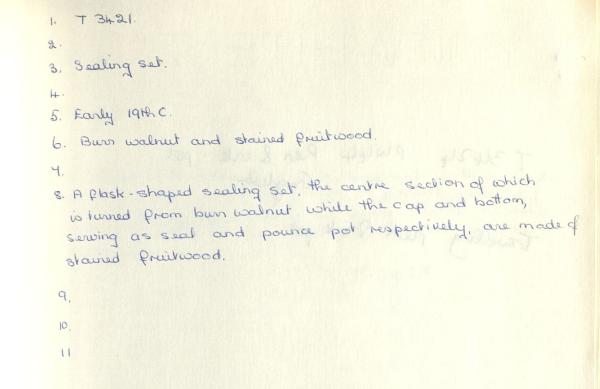 1. T 3421.
2.
3. Sealing set.
4.
5. Early 19th C.
6. Burr walnut and stained fruitwood.
7.
8. A flask-shaped sealing set, the centre section of which
is turned from burr walnut while the cap and bottom,
serving as seal and pounce pot respectively, are made of
stained fruitwood.
9.
10.
11